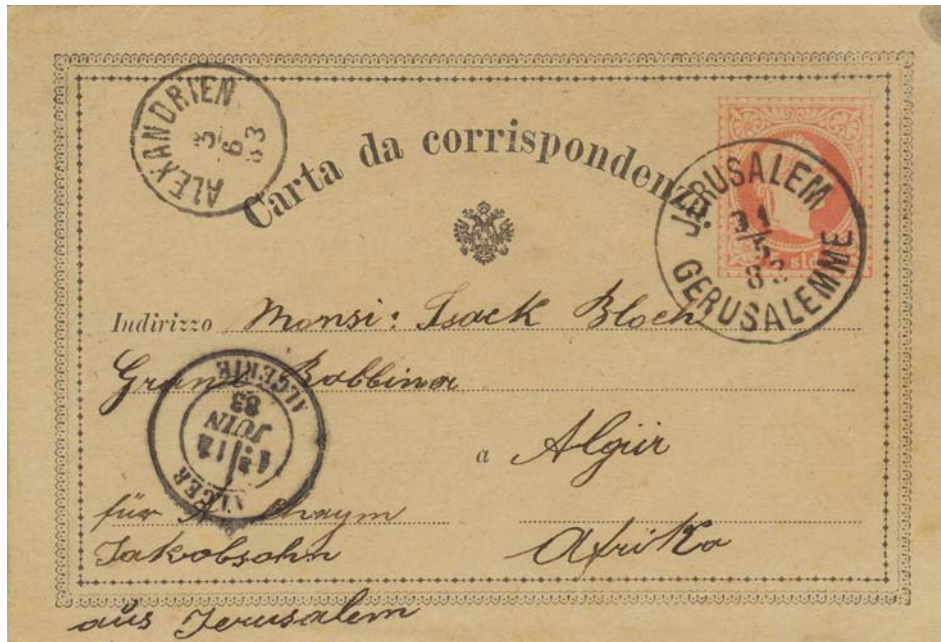 ALEXANDRIEN
3/6
83
Carta da corrispondenza.
JERUSALEM
31/5
83
GERUSALEMME
Indirizzo Monsi: Isack Bloch
Grand Rabbiner
a Algir
ALGER
JUIN
83
ALGERIE
für A. Chaym
Jakobsohn
Afrika
aus Jerusalem